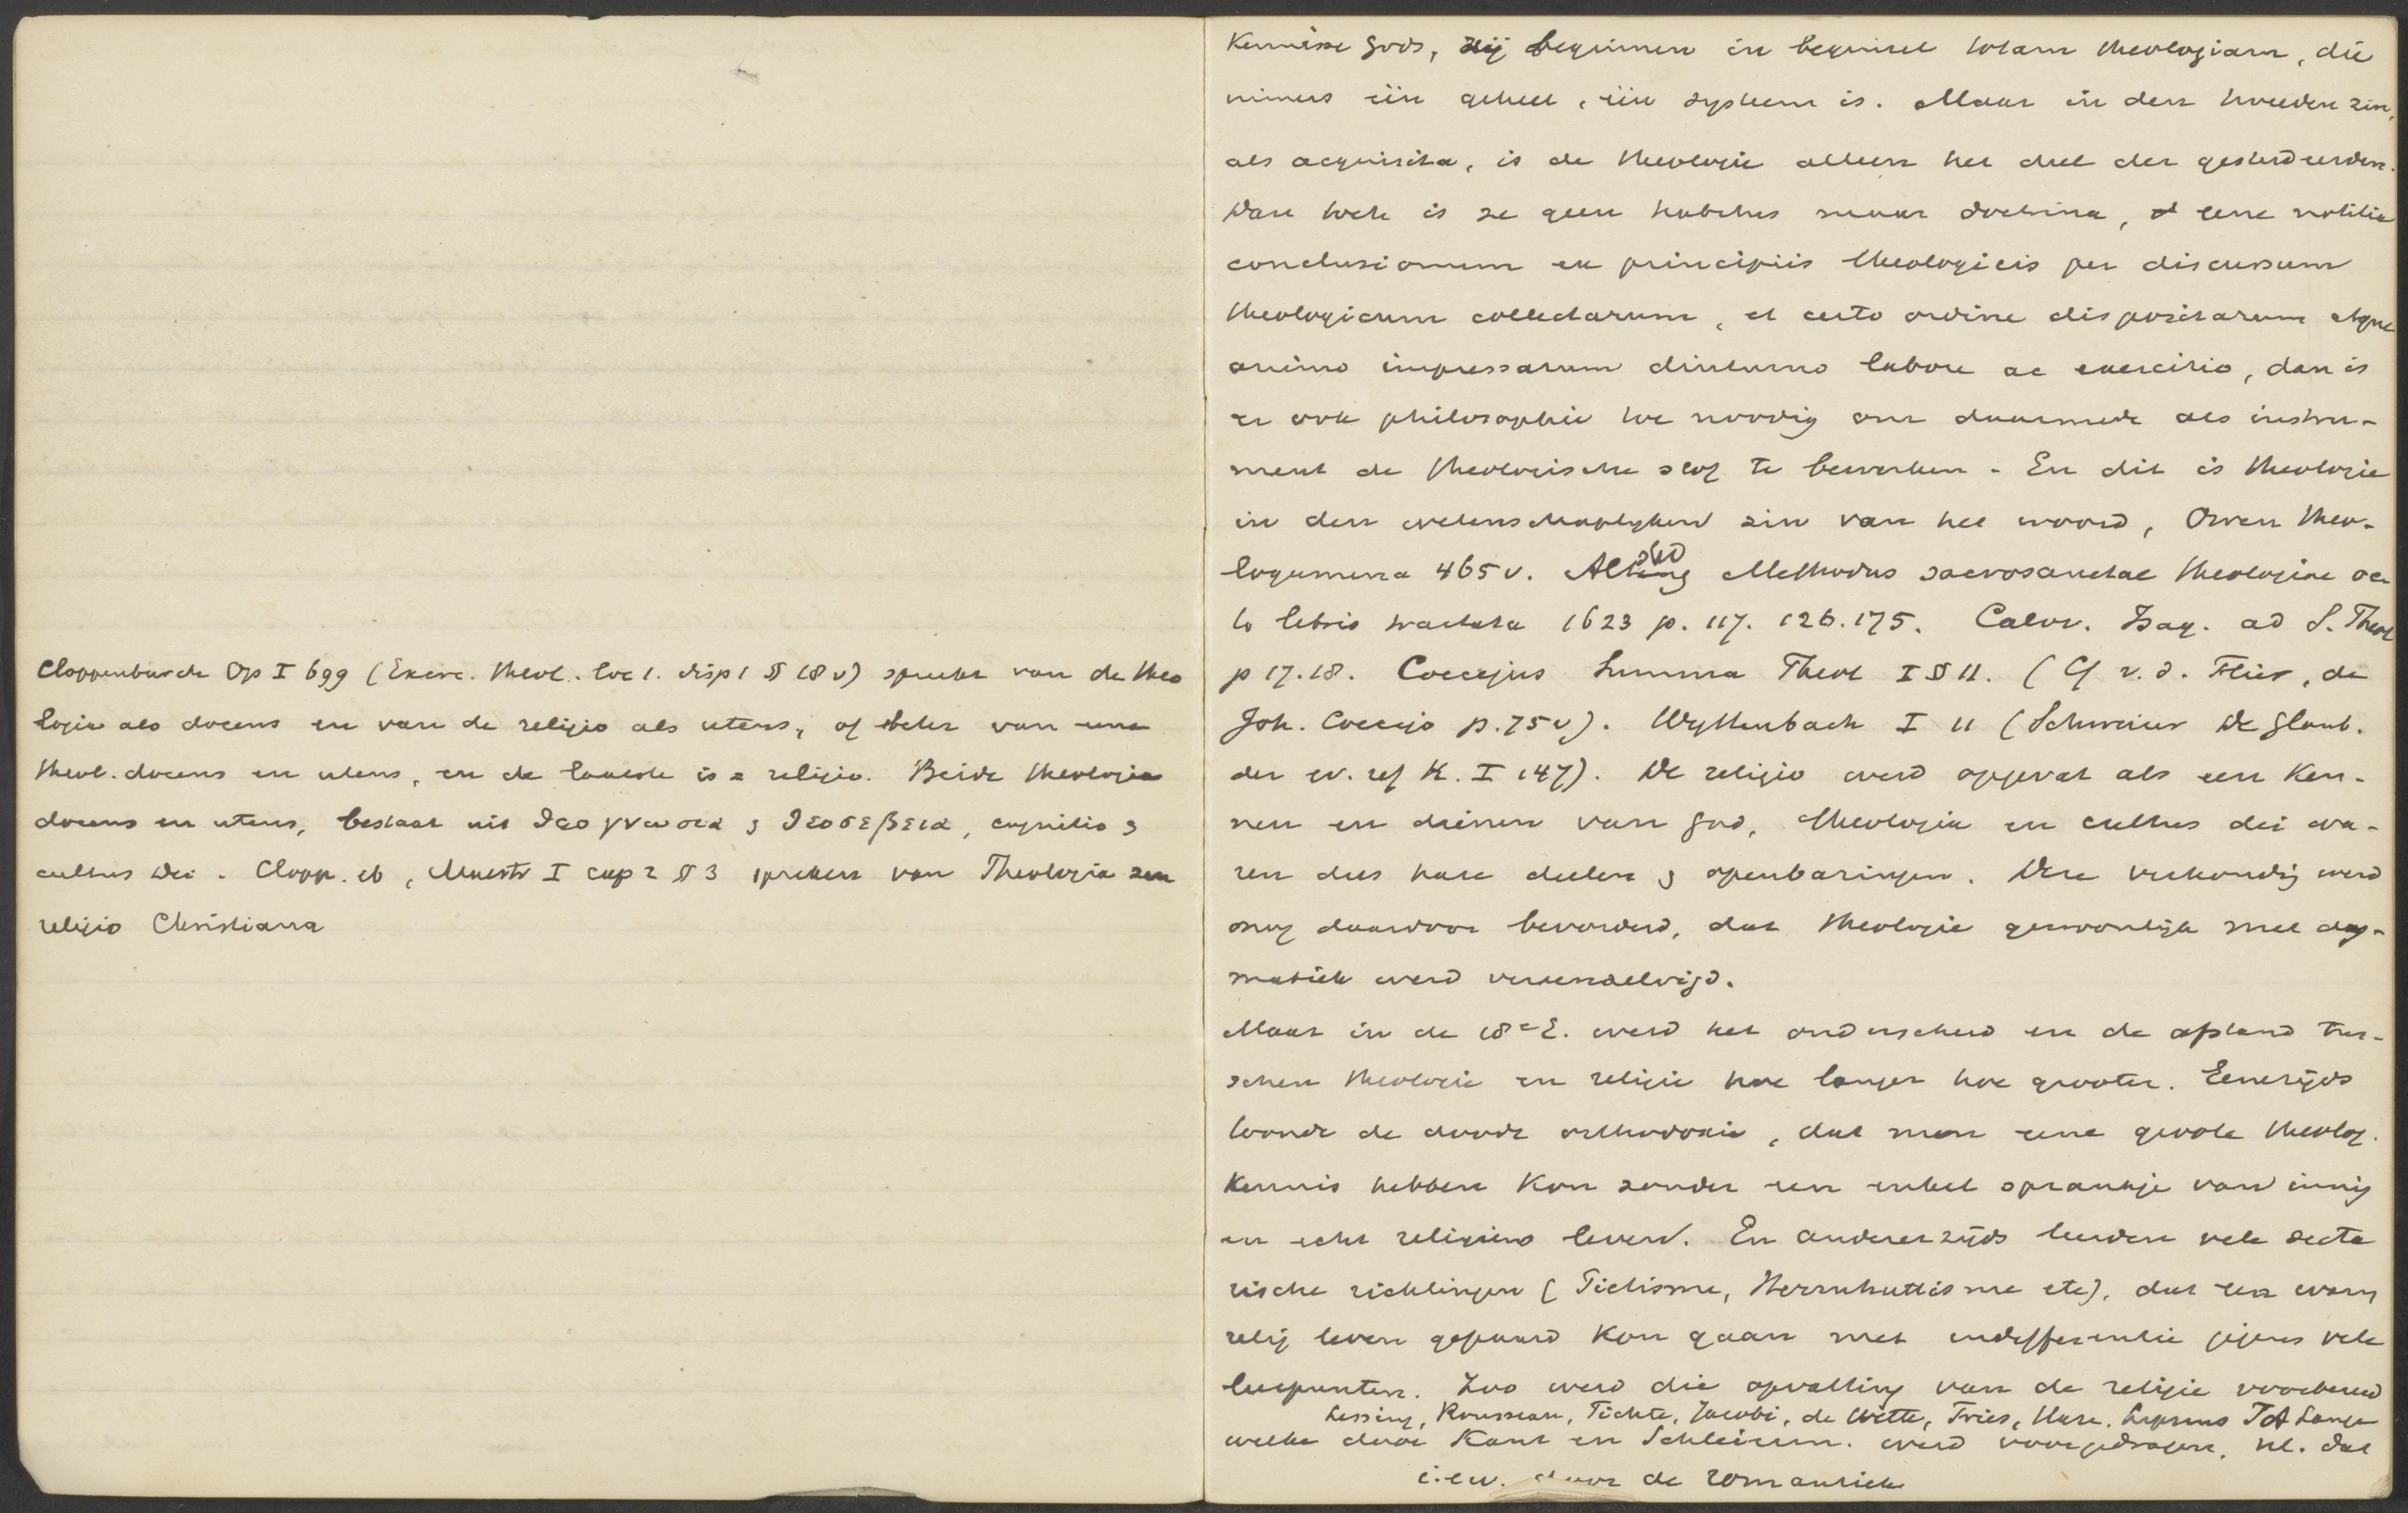 Cloppenburch Op I 699 (Exerc. theol. loc 1. disp 1 § 18 v) spreekt van de theo
logia als docens en van de religio als utens, of beter van eene
theol. docens en utens, en de laatste is = religio. Beide theologia
docens en utens, bestaat uit θεογνωσια & θεοσεβεια, cognitio &
cultus Dei. Clopp. ib, Maestr I cap 2 § 3 spreken van Theologia seu
religio Christiana
kennisse Gods, zij beginnen in beginsel totam theologiam, die
immers één geheel, één systeem is. Maar in den tweeden zin,
als acquisita, is de theologie alleen het deel der gestudeerden.
Dan toch is ze geen habitus maar doctrina, eene notitia
conclusionum ex principiis theologicis per discursum
theologicum collectarum, et certo ordine dispositarum atque
animo impressarum diuturno labore ac exercitio, dan is
er ook philosophie toe noodig om daarmede als instru-
ment de theologische stof te bewerken. En dit is theologie
in den wetenschaplijken zin van het woord, Owen theo-
logumena 465 v. Alsted Methodus sacrosanctae theologiae oc
to libris tractata 1623 p. 117. 126. 175. Calov. Isag. ad S. Theol
p 17.18. Coccejus Summa Theol I § 11. (Cf v. d. Flier, de
Joh. Coccejo p. 75 v). Wyttenbach I 11 (Schweizer De Glaub.
der ev. ref K. I 147). De religio werd opgevat als een ken-
nen en dienen van God, theologia en cultus dei wa-
ren dus hare deelen & openbaringen. Deze verkondig werd
nog daardoor bevorderd, dat theologie gewoonlijk met dog-
matiek werd vereenzelvigd.
Maar in de 18e E. werd het onderscheid en de afstand tus-
schen theologie en religie hoe langer hoe grooter. Eenerzijds
toonde de doode orthodoxie, dat men eene groote theolog.
kennis hebben kon zonder een enkel sprankje van innig
en echt religieus leven. En anderzijds leerden vele secta
rische richtingen (Piëtisme, Herrnhuttisme etc), dat een warm
relig leven gepaard kon gaan met indifferentie jegens vele
leerpunten. Zoo werd die opvatting van de religie voorbereid
Lessing, Rousseau, Fichte, Jacobi, de Wette, Fries, Hase, Lipsius F A Lange
welke door Kant en Schleierm. werd voorgedragen, nl. dat
i.e.w. door de romantiek